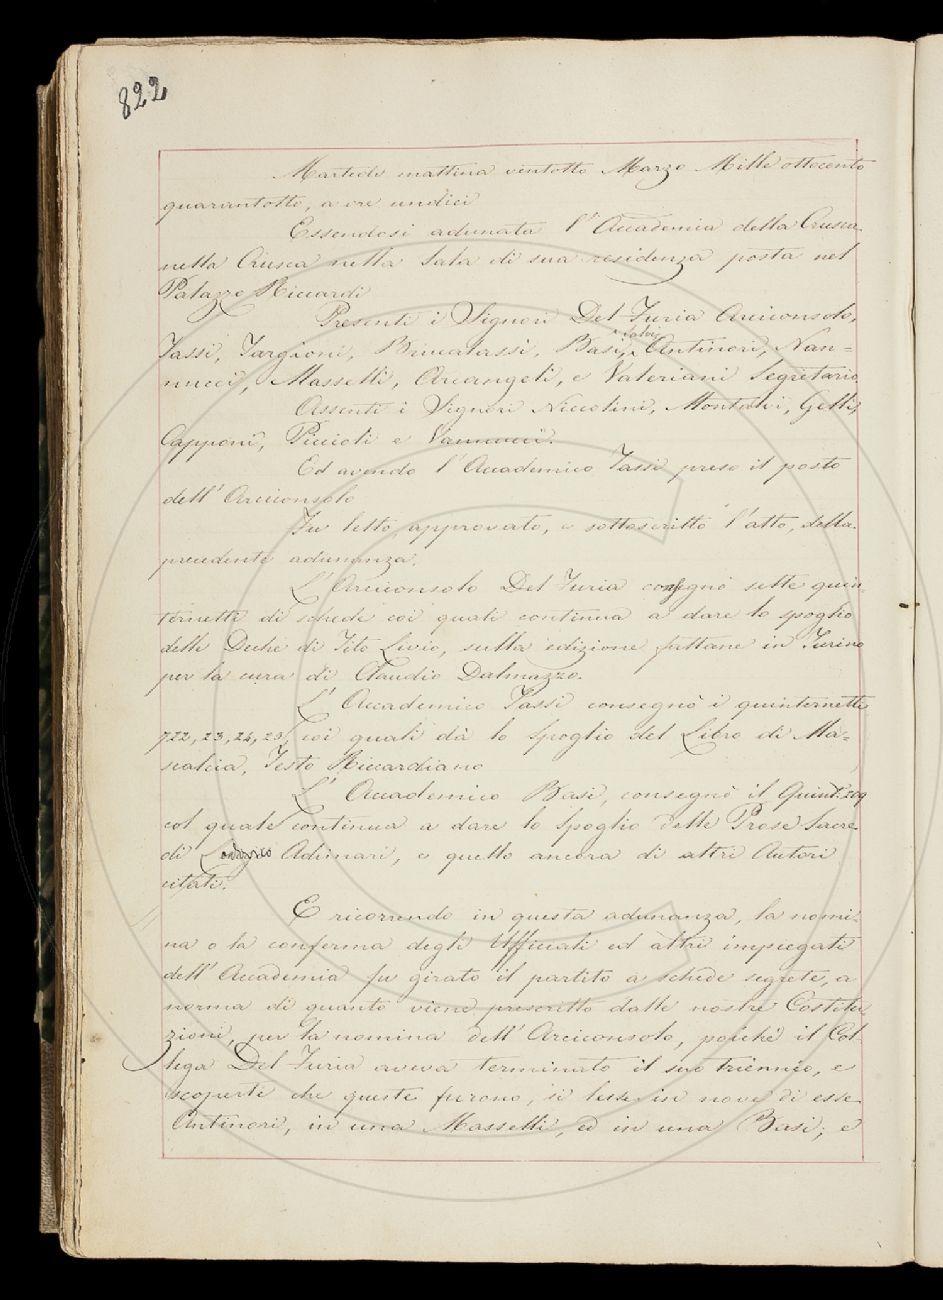 822
Martedi mattina ventotto Marzo Mille ottocento
quarantotto, a ore undici
Essendosi adunata l'Accademia della Crusca
nella Crusca nella Sala di sua residenza posta nel
Palazzo Riccardi
Presenti i Signori Del Furia Arciconsolo,
Tassi, Targioni, Brucalassi, Basi, Salvi, Antinori, Nan=
nucci, Masselli, Arcangeli, e Valeriani Segretario
Assenti i Signori Niccolini, Montalvi, Gelli,
Capponi, Piccioli e Vannucci.
Ed avendo l'Accademico Tassi preso il posto
dell'Arciconsolo
Fu letto, approvato, e sottoscritto l'atto, della
precedente adunanza.
L'Arciconsolo Del Furia consegnò sette quin-
ternetti di schede coi quali continua a dare lo spoglio
delle Deche di Tito Livio, sulla edizione fattane in Turino
per la cura di Claudio Dalmazzo.
L'Accademico Tassi consegnò i quinternetti
722, 23, 24, 25, coi quali dà lo Spoglio del Libro di Ma=
scalcia, Testo Riccardiano
L'Accademico Basi, consegnò il Quint. 209
col quale continua a dare lo Spoglio delle Prose Sacre
di Lodovico Adimari, e quello ancora di altri Autori
citati.
E ricorrendo in questa adunanza, la nomi-
na o la conferma degli Uffiziali ed altri impiegati
dell'Accademia fu girato il partito a schede segrete, a
norma di quanto viene prescritto dalle nostre Costitu-
zioni, per la nomina dell'Arciconsolo, poichè il Col-
lega Del Furia aveva terminato il suo triennio, e
scoperte che queste furono, si lesse in nove di esse
Antinori, in una Masselli, ed in una Basi; e